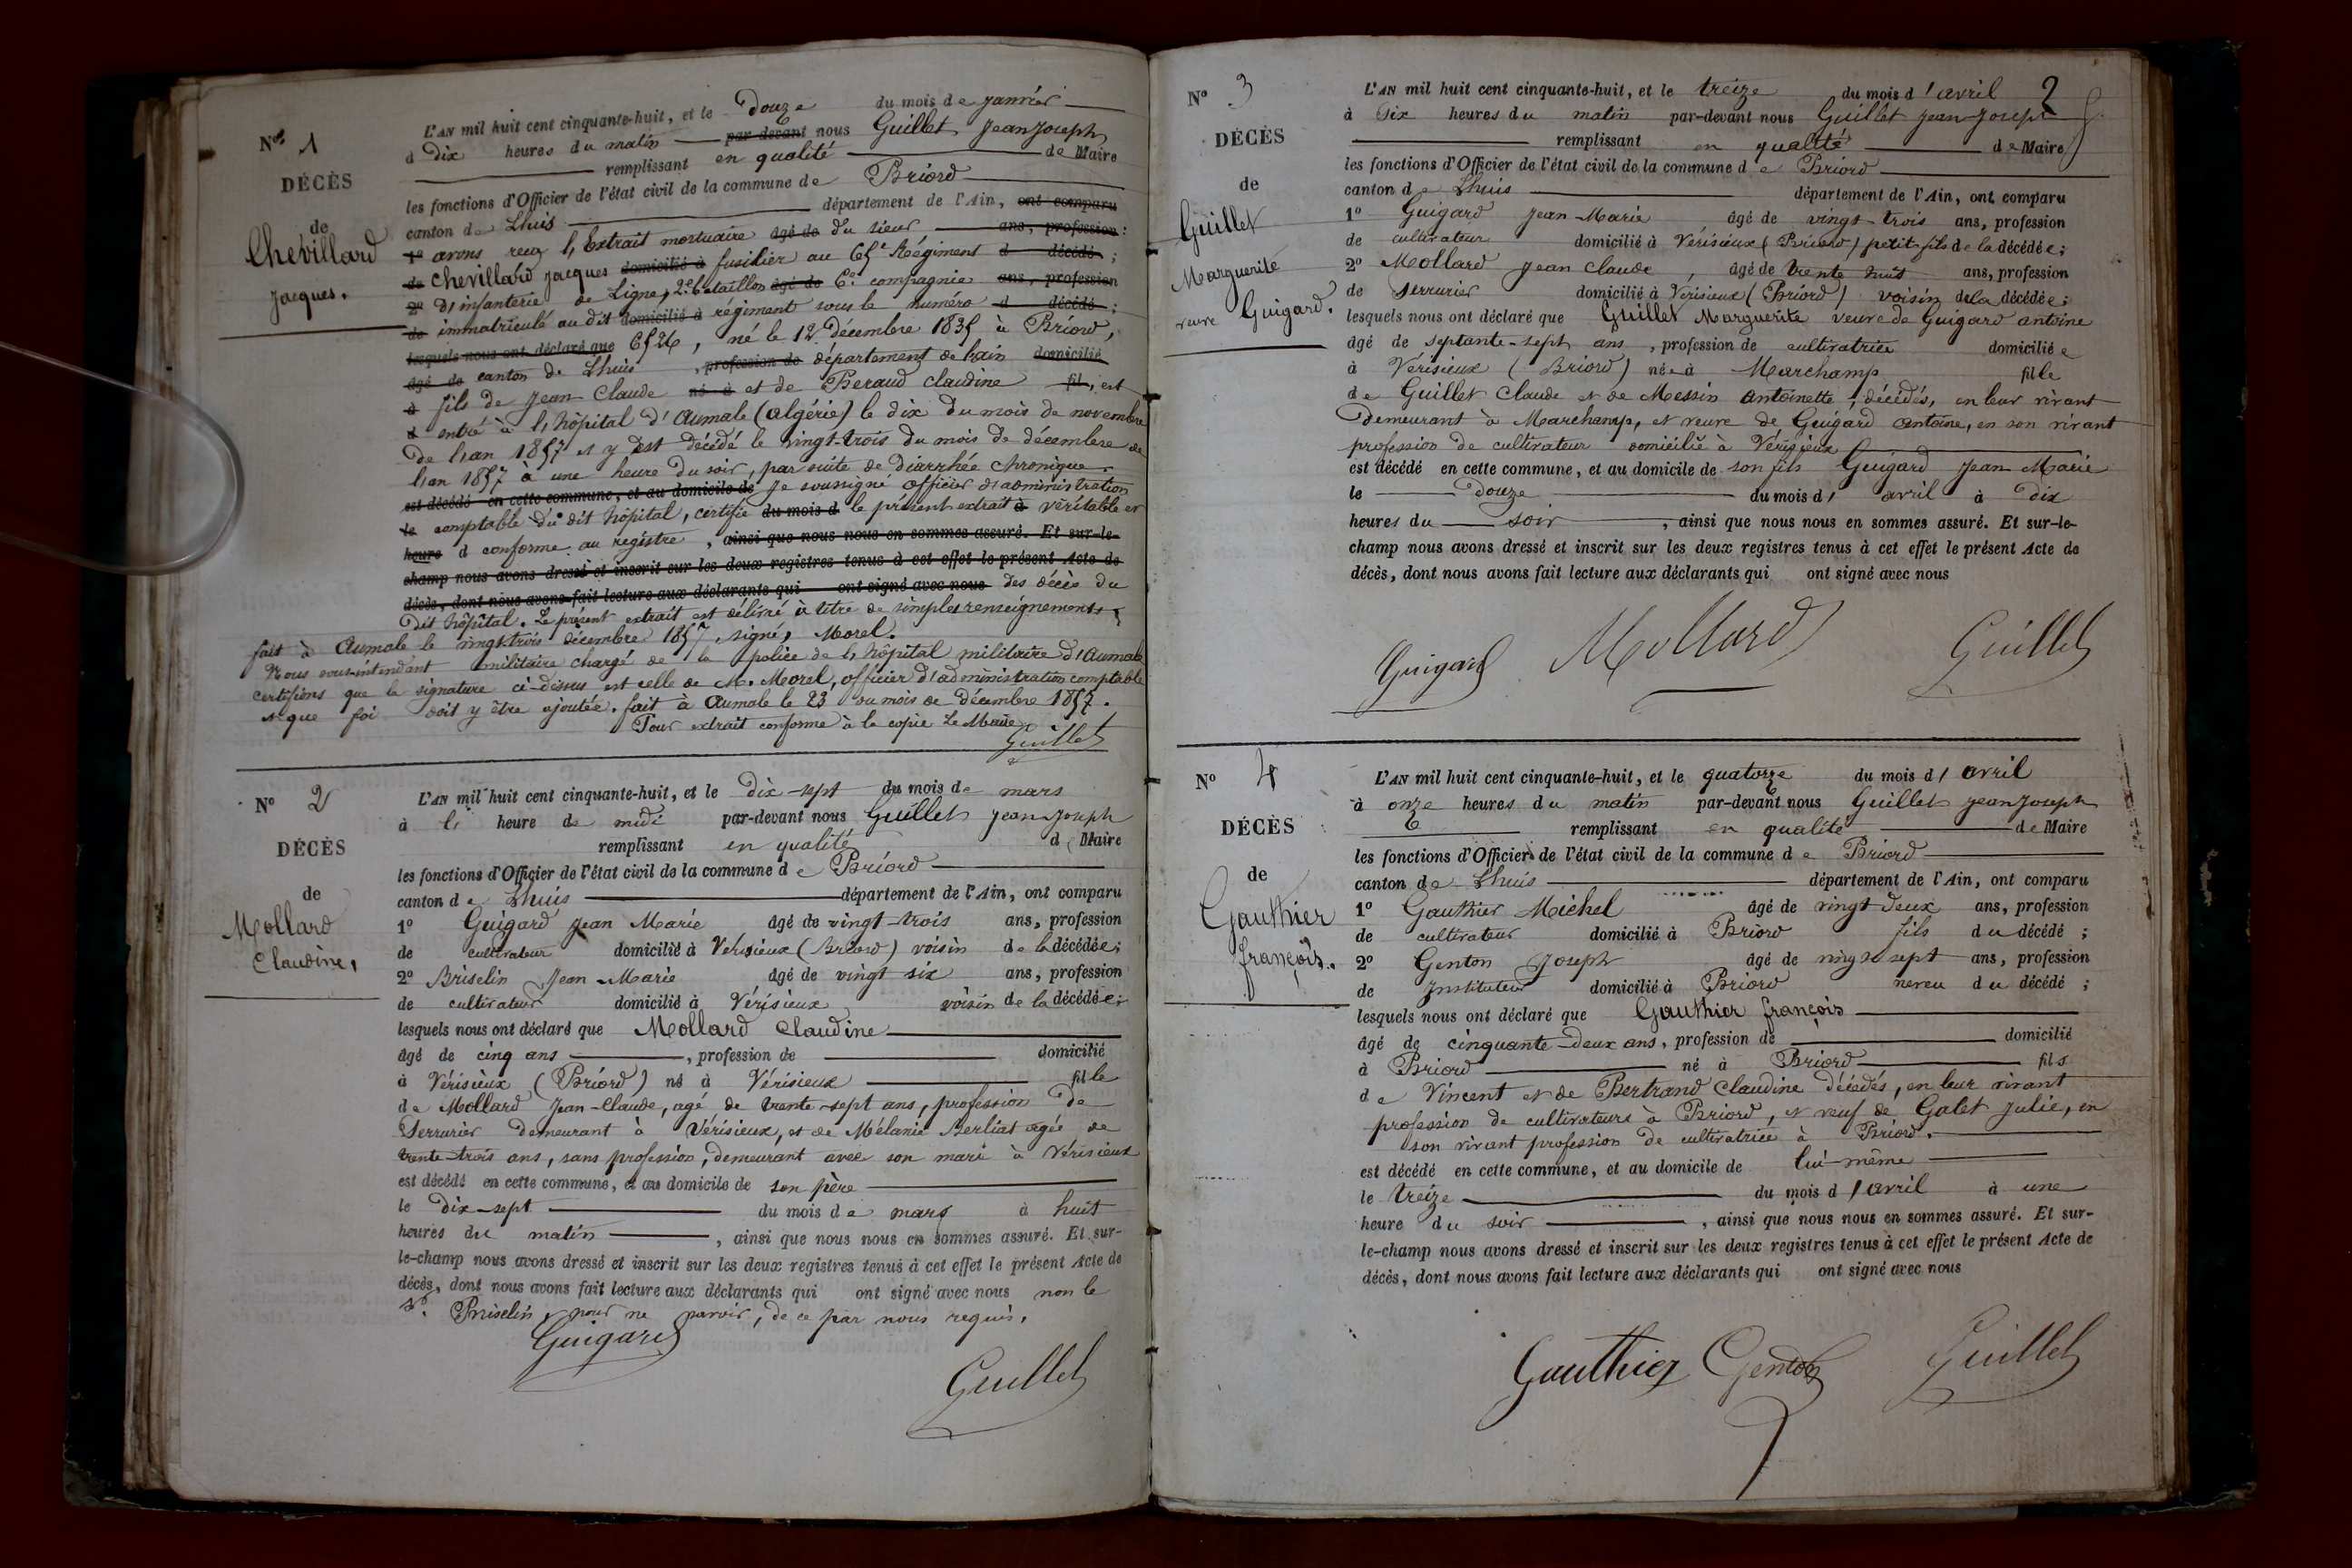 N° 1
DÉCÈS
de
Chevillard
Jacques.
L'AN mil huit cent cinquante-huit, et le Douze du mois de janvier
à Dix heures du matin par-devant nous Guillet Jean Joseph
remplissant en qualité de Maire
les fonctions d'Officier de l'état civil de la commune de Briord
canton de Lhuis département de l'Ain, ont comparu
1° avons reçu l'Extrait mortuaire âgé de du sieur, ans, profession
de Chevillard Jacques domicilié à fusilier au 65e Régiment d décédé ;
2° d'infanterie de Ligne, 2e Bataillon âgé de 6e compagnie ans, profession
de immatriculé au dit domicilié à régiment sous le numéro d décédé ;
lesquels nous ont déclaré que 6526, né le 12 Décembre 1835 à Briord,
âgé de canton de Lhuis, profession de département de l'ain domicilié
à fils de Jean Claude né à et de Beraud Claudine fil, est
d entré à l'hôpital d'Aumale (algérie) le dix du mois de novembre
De l'an 1857 et y est décédé le vingt-trois du mois de décembre de
l'an 1857 à une heure du soir, par suite de Diarrhée chronique.
est décédé en cette commune, et au domicile de Je soussigné officier d'administration
le comptable du dit hôpital, certifié du mois d le présent extrait à véritable et
heure d conforme au registre, ainsi que nous nous en sommes assuré. Et sur-le-
champ nous avons dressé et inscrit sur les deux registres tenus à cet effet le présent Acte de
décès, dont nous avons fait lecture aux déclarants qui ont signé avec nous des décès du
Dit hôpital. Le présent extrait est délivré à titre de simples renseignements.
fait à Aumale le vingt-trois décembre 1857, signé, Morel.
Nous sous-intendant militaire chargé de la police de l'hôpital militaire d'Aumale
certifions que la signature ci-dessus est celle de M. Morel, officier d'administration comptable
et que foi doit y être ajoutée. fait à Aumale le 23 du mois de Décembre 1857.
Pour extrait conforme à la copie Le Maire
Guillet
N° 2
DÉCÈS
de
Mollard
Claudine,
L'AN mil huit cent cinquante-huit, et le Dix-sept du mois de mars
à l' heure de midi par-devant nous Guillet Jean Joseph
remplissant en qualité d Maire
les fonctions d'Officier de l'état civil de la commune de Briord
canton de Lhuis département de l'Ain, ont comparu
1° Guigard Jean Marie âgé de vingt-trois ans, profession
de cultivateur domicilié à Vérisieux (Briord) voisin de la décédée;
2° Briselin Jean-Marie âgé de vingt six ans, profession
de cultivateur domicilié à Vérisieux voisin de la décédée;
lesquels nous ont déclaré que Mollard Claudine
âgé de cinq ans, profession de domicilié
à Vérisieux (Briord) né à Vérisieux fille
de Mollard Jean-Claude, agé de trente-sept ans, profession De
Serrurier demeurant à Vérisieux, et de Mélanie Berliat agée de
trente-trois ans, sans profession, demeurant avec son mari à Vérisieux
est décédé en cette commune, et au domicile de son père
le Dix-sept du mois de mars à huit
heures du matin, ainsi que nous nous en sommes assuré. Et sur-
le-champ nous avons dressé et inscrit sur les deux registres tenus à cet effet le présent Acte de
décès, dont nous avons fait lecture aux déclarants qui ont signé avec nous non le
Sr. Briselin, pour ne savoir, de ce par nous requis.
Guigard
Guillet
2
N° 3
DÉCÈS
de
Guillet
Marguerite
veuve Guigard.
L'AN mil huit cent cinquante-huit, et le treize du mois d'avril
à Dix heures du matin par-devant nous Guillet Jean Joseph
remplissant en qualité de Maire
les fonctions d'Officier de l'état civil de la commune de Briord
canton de Lhuis département de l'Ain, ont comparu
1° Guigard Jean-Marie âgé de vingt-trois ans, profession
de cultivateur domicilié à Vérisieux (Briord) petit-fils de la décédée;
2° Mollard Jean Claude, âgé de trente huit ans, profession
de Serrurier domicilié à Vérisieux (Briord) voisin de la décédée;
lesquels nous ont déclaré que Guillet Marguerite veuve de Guigard antoine
âgé de septante-sept ans, profession de cultivatrice domiciliée
à Vérisieux (Briord) née à Marchamp fille
de Guillet Claude et de Messin Antoinette, décédés, en leur vivant
Demeurant à Marchamp, et veuve de Guigard Antoine, en son vivant
profession de cultivateur domicilié à Vérisieux
est décédé en cette commune, et au domicile de son fils Guigard Jean Marie
le Douze du mois d'avril à Dix
heures du soir, ainsi que nous nous en sommes assuré. Et sur-le-
champ nous avons dressé et inscrit sur les deux registres tenus à cet effet le présent Acte de
décès, dont nous avons fait lecture aux déclarants qui ont signé avec nous
Guigard Mollard Guillet
N° 4
DÉCÈS
de
Gauthier
françois.
L'AN mil huit cent cinquante-huit, et le quatorze du mois d'avril
à onze heures du matin par-devant nous Guillet Jean Joseph
remplissant en qualité de Maire
les fonctions d'Officier de l'état civil de la commune de Briord
canton de Lhuis département de l'Ain, ont comparu
1° Gauthier Michel âgé de vingt-deux ans, profession
de cultivateur domicilié à Briord fils du décédé ;
2° Genton Joseph âgé de vingt sept ans, profession
de Instituteur domicilié à Briord neveu du décédé ;
lesquels nous ont déclaré que Gauthier françois
âgé de cinquante-deux ans, profession de domicilié
à Briord né à Briord fils
de Vincent et de Bertrand Claudine décédés, en leur vivant
profession de cultivateurs à Briord, et veuf de Galet Julie, en
son vivant profession de cultivatrice à Briord.
est décédé en cette commune, et au domicile de lui-même
le treize du mois d'avril à une
heure du soir, ainsi que nous nous en sommes assuré. Et sur-
le-champ nous avons dressé et inscrit sur les deux registres tenus à cet effet le présent Acte de
décès, dont nous avons fait lecture aux déclarants qui ont signé avec nous
Gauthier Genton Guillet